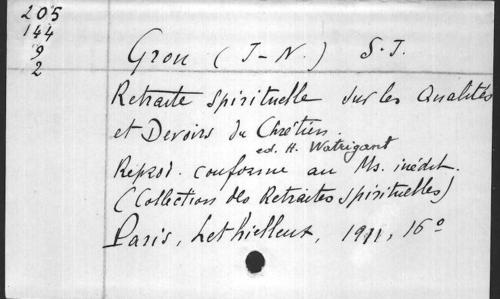 205
144
9
2
Grou (J-N.) S.J.
Retraite spirituelle sur les Qualités
et Devoirs du Chrétien.
ed. H. Watrigant
Reprod. conforme au Ms. inédit.
(Collection des Retraites spirituelles)
Paris, Lethielleux, 1911, 16º